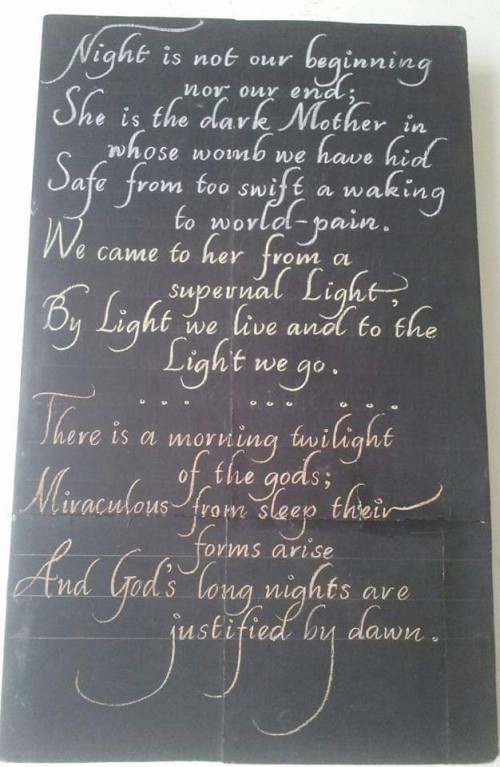 Night is not our beginning
nor our end;
She is the dark Mother in
whose womb we have hid
Safe from too swift a waking
to world-pain.
We came to her from a
supernal Light,
By Light we live and to the
Light we go.
... ... ...
There is a morning twilight
of the gods;
Miraculous from sleep their
forms arise
And God's long nights are
justified by dawn.